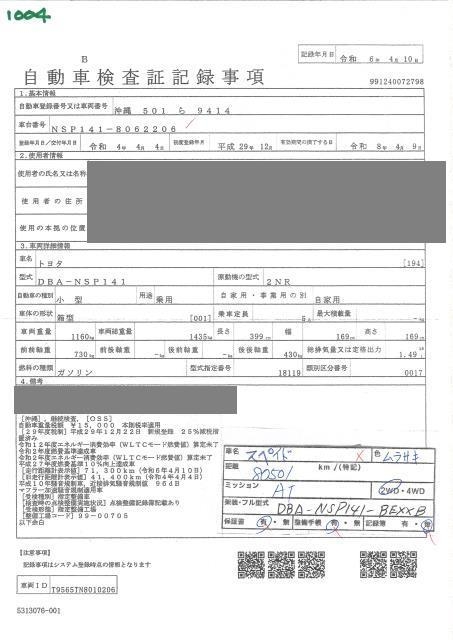 1004
B
記録年月日 令和 6年 4月 10日
自動車検査証記録事項
991240072798
1.基本情報
自動車登録番号又は車両番号 沖縄 501 ら 9414
車台番号 NSP141-8062206
登録年月日/交付年月日 令和 4年 4月 4日 初度登録年月 平成 29年 12月 有効期間の満了する日 令和 8年 4月 9日
2.使用者情報
使用者の氏名又は名称
使用者の住所
使用の本拠の位置
3.車両詳細情報
車名 トヨタ [194]
型式 DBA-NSP141 原動機の型式 2NR
自動車の種別 小型 用途 乗用 自家用・事業用の別 自家用
車体の形状 箱型 [001] 乗車定員 5人 最大積載量 -kg
車両重量 1160kg 車両総重量 1435kg 長さ 399cm 幅 169cm 高さ 169cm
前前軸重 730kg 前後軸重 -kg 後前軸重 -kg 後後軸重 430kg 総排気量又は定格出力 1.49
燃料の種類 ガソリン 型式指定番号 18119 類別区分番号 0017
4.備考
[沖縄],継続検査,[OSS]
自動車重量税額 ¥15,000 本則税率適用
[29年度税制]平成29年12月22日 新規登録 25%減税
措置済み
令和12年度エネルギー消費効率(WLTCモード燃費値)算定未了
令和2年度燃費基準達成車
令和2年度エネルギー消費効率(WLTCモード燃費値)算定未了
平成27年度燃費基準10%向上達成車
[走行距離計表示値]71,300km(令和6年4月10日)
[旧走行距離計表示値]41,400km(令和4年4月4日)
平成10年騒音規制車,近接排気騒音規制値 96dB
マフラー加速騒音規制適用車
[受検種別]指定整備車
[検査時の点検整備実施状況]点検整備記録簿記載あり
[受検形態]指定整備工場
[整備工場コード]99-00705
以下余白
車名 スペイド 色 ムラサキ
距離 80501 km/(特記)
ミッション AT 2WD・4WD
架装・フル型式 DBA-NSP141-BEXXB
保証書 有・無 整備手帳 有・無 記録簿 有・無
[注意事項]
記録事項はシステム登録時点の情報となります
車両ID T9565TN8010206
5313076-001